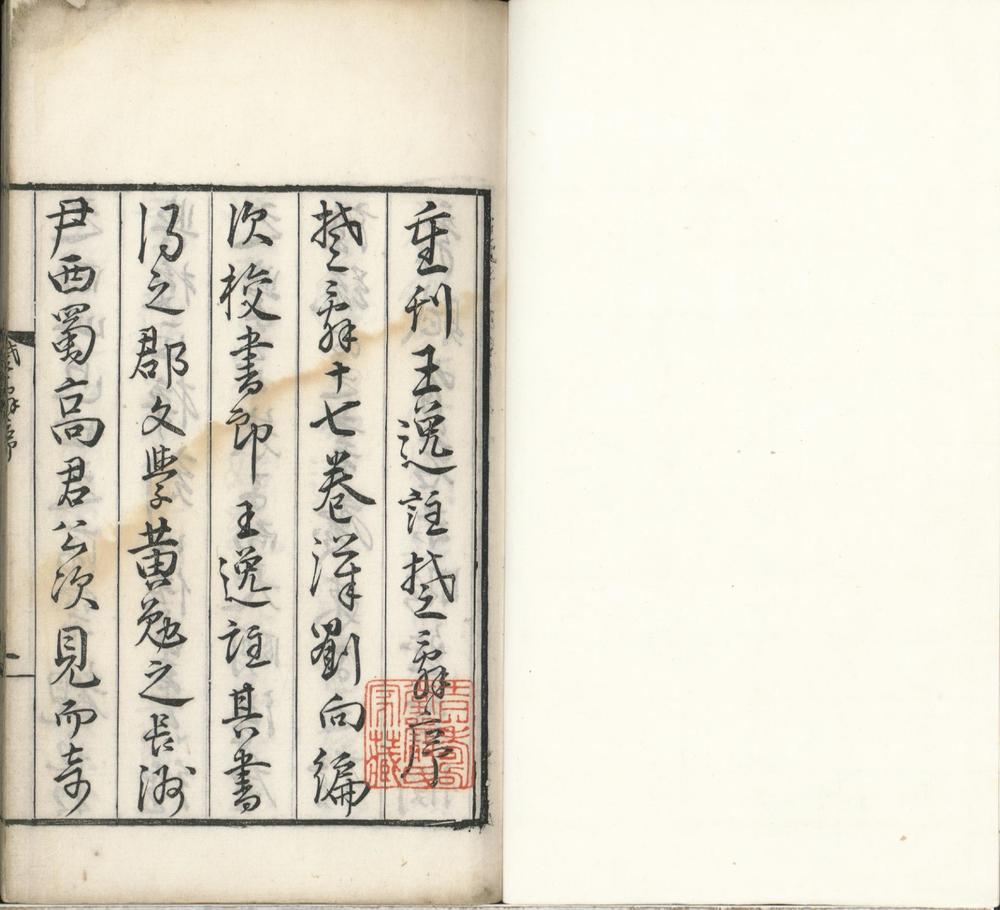 重刊王逸註楚辭序
楚辭十七卷漢劉向編
次校書郎王逸註其書
得之郡文學黃勉之長洲
尹西蜀高君公次見而奇
楚辭序